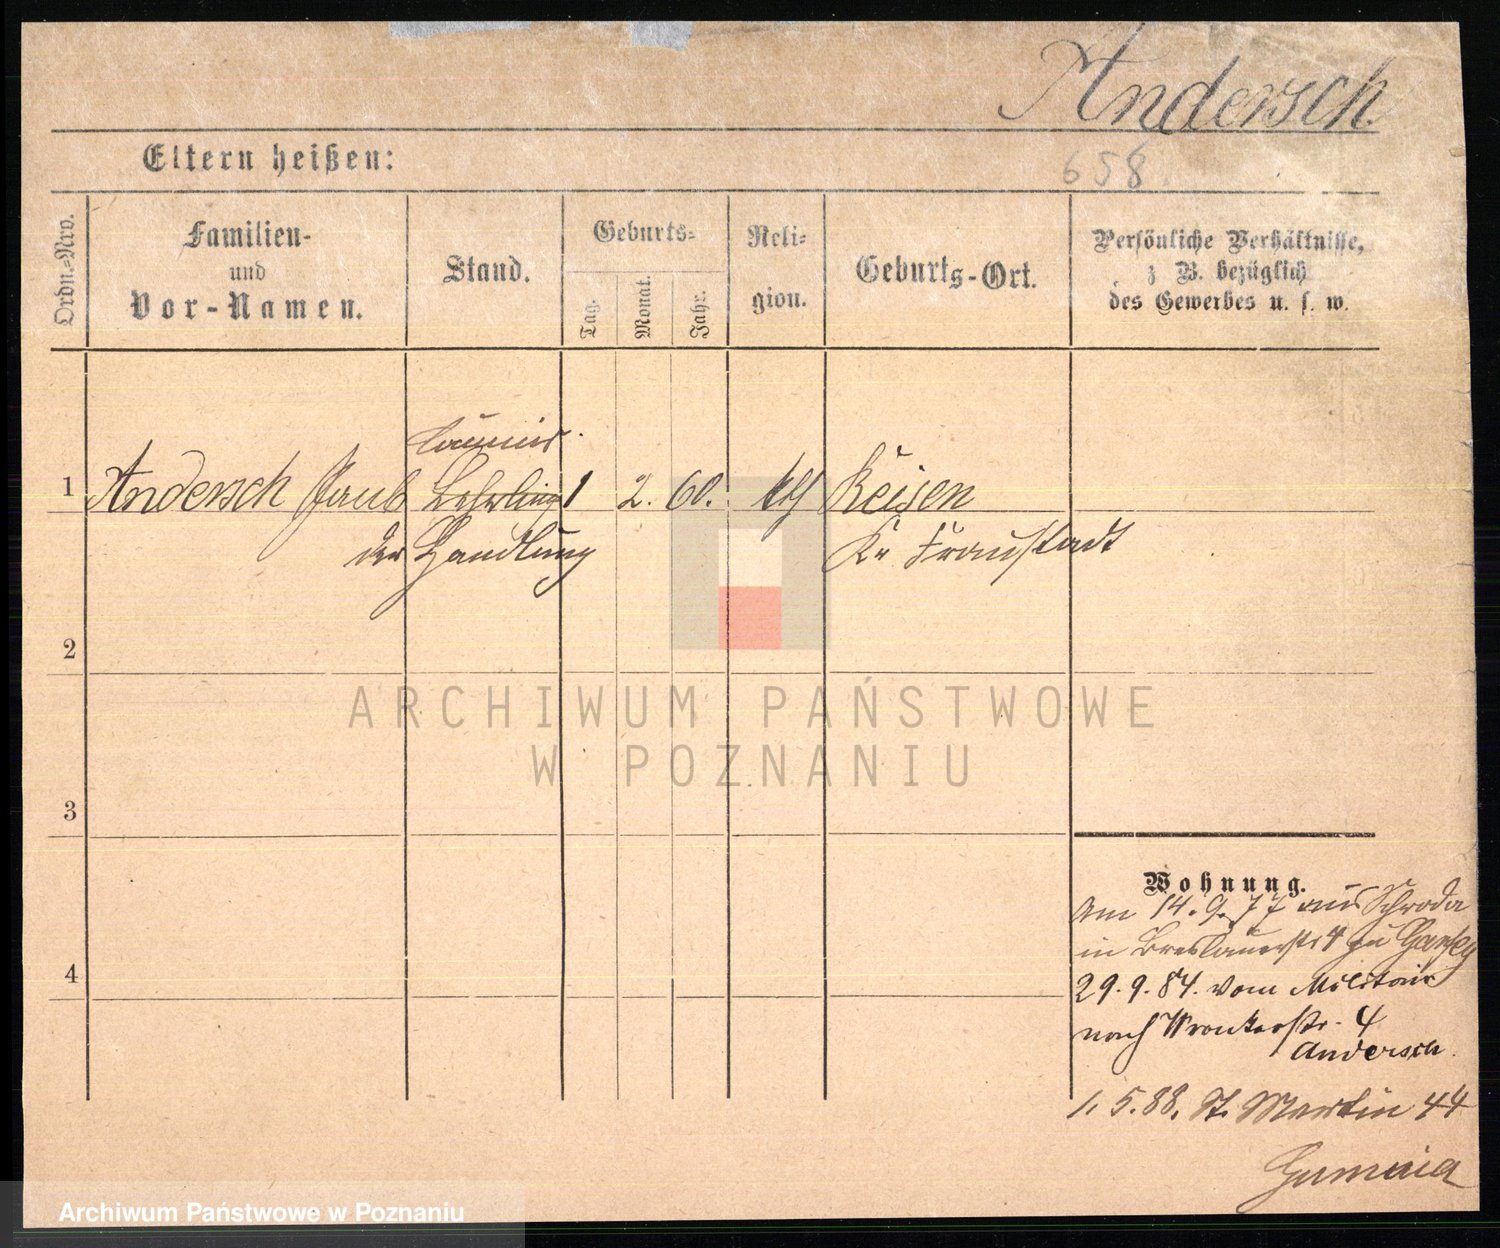 Andersch
658
Eltern heißen:
Ordn.-Nro.
Familien-
und
Vor-Namen.
Stand.
Geburts-
Tag.
Monat.
Jahr.
Reli-
gion.
Geburts-Ort.
Persönliche Verhältnisse,
z B. bezüglich
des Gewerbes u. s. w.
1 Andersch Lehrling 1 2. 60. Reisen
der Handlung Kr Fraustadt
2
3
4
Wohnung.
Am 14.9.77 aus Schroda
in Breslauerstr 4 zu
29.9.84. vom Militair
nach Wronkerstr. 4
Andersch.
1.5.88. St. Martin 44
ARCHIWUM PAŃSTWOWE
W POZNANIU
Archiwum Państwowe w Poznaniu